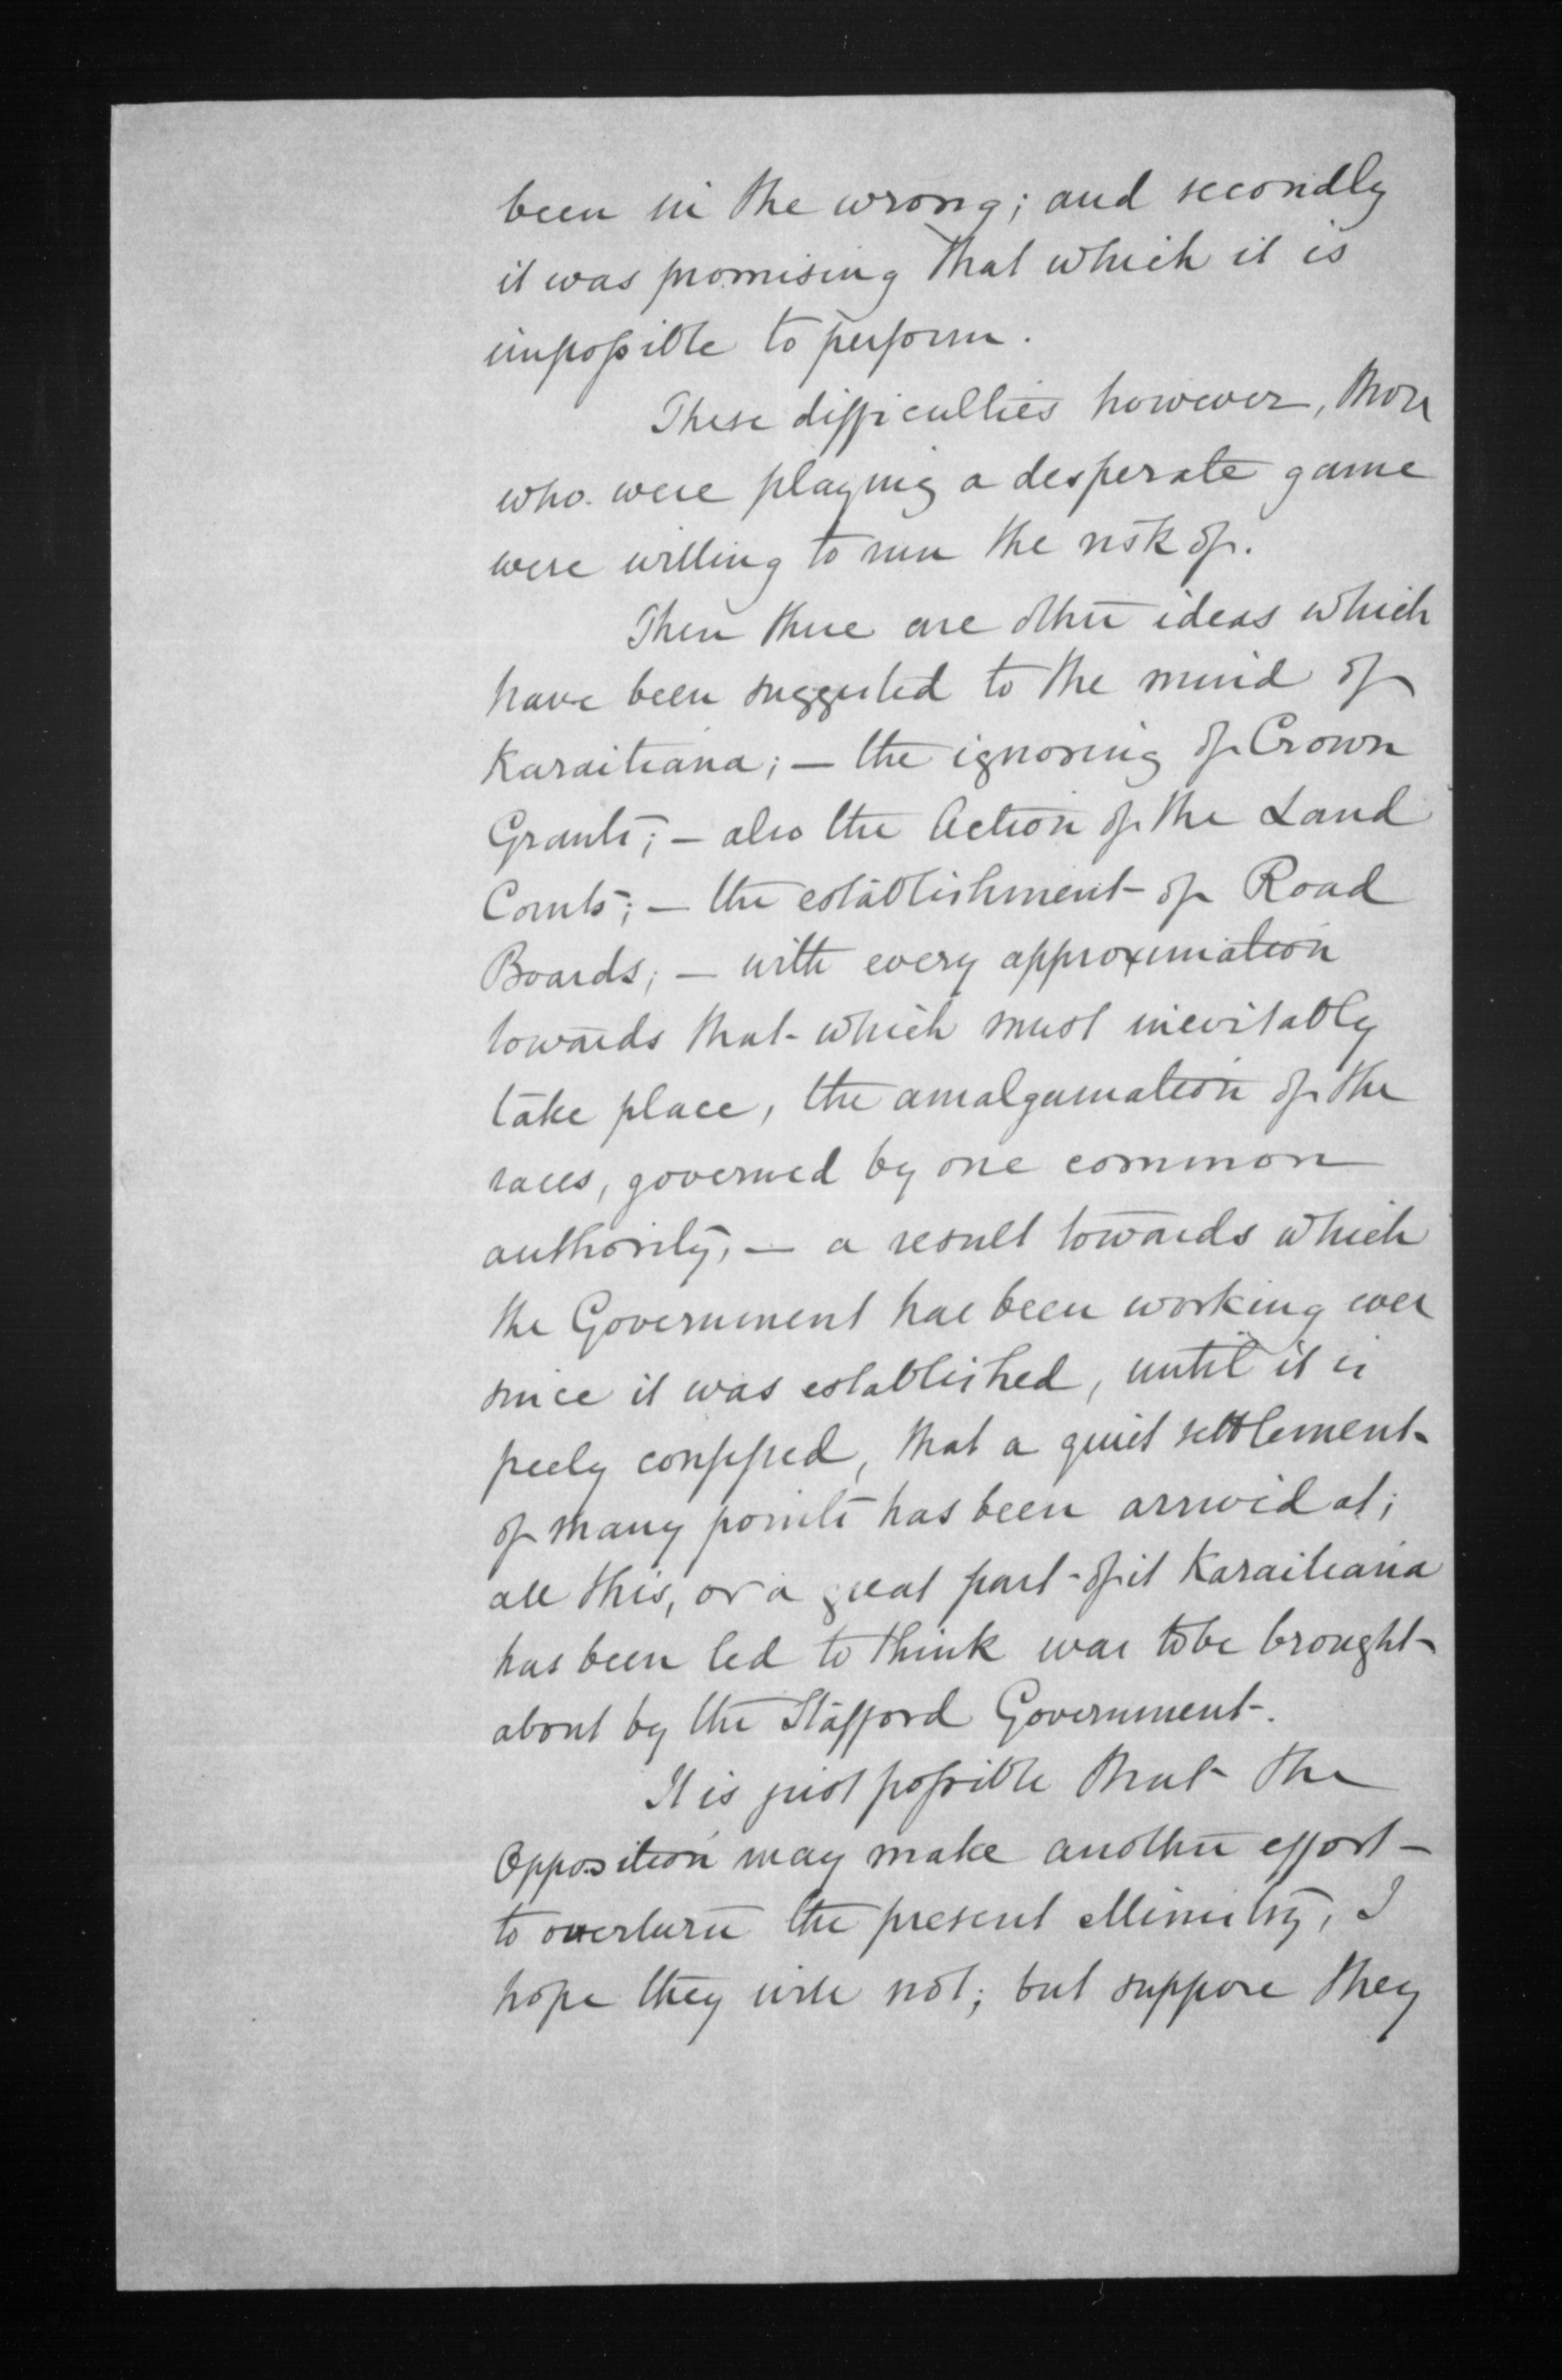 been in the wrong; and secondly
it was promising that which it is
impossible to perform.
These difficulties however, those
who were playing a desperate game
were willing to run the risk of.
Then there are other ideas which
have been suggested to the mind of
Karaitiana; — the ignoring of Crown
Grants; — also the Action of the Land
Courts; — the establishment of Road
Boards; — with every approximation
towards that which must inevitably
take place, the amalgamation of the
races, governed by one common
authority, — a result towards which
the Government has been working ever
since it was established, until it is
freely confessed, that a quiet settlement
of many points has been arrived at;
all this, or a great part of it Karaitiana
has been led to think was to be brought
about by the Stafford Government.
It is just possible that the
Opposition may make another effort
to overturn the present Ministry, I
hope they will not; but suppose they